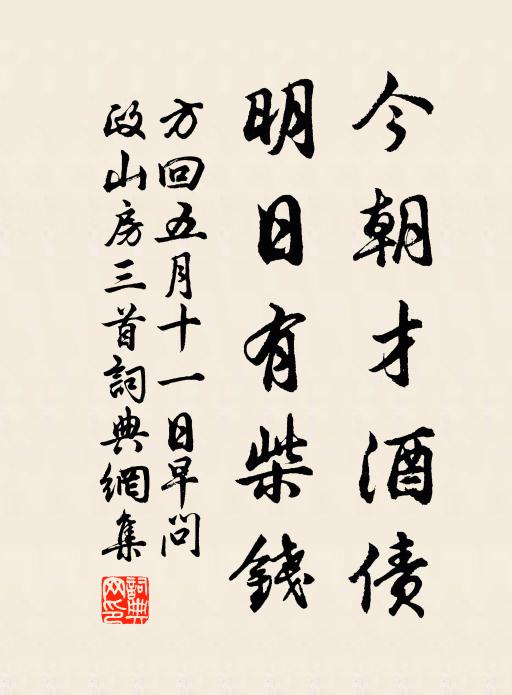 今朝才酒债
明日有柴錢
方回五月十一日早问
政山房三首詞典網集
詞典
网印